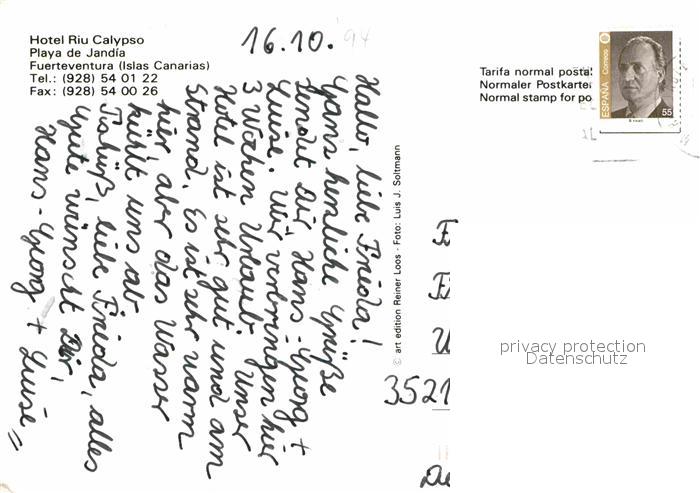 Hotel Riu Calypso
Playa de Jandía
Fuerteventura (Islas Canarias)
Tel.: (928) 54 01 22
Fax: (928) 54 00 26
16.10. 94
Hallo, liebe Frieda!
Ganz herzliche Grüße
sendet Dir Hans-Georg +
Luise. Wir verbringen hier
3 Wochen Urlaub. Unser
Hotel ist sehr gut und am
Strand. Es ist sehr warm
hier, aber das Wasser
kühlt uns ab.
Tschüß, liebe Frieda, alles
Gute wünscht Dir,
Hans-Georg + Luise
© art edition Reiner Loos · Foto: Luis J. Soltmann
Tarifa normal postal
Normaler Postkarte
Normal stamp for po
ESPAÑA Correos
55
3521
privacy protection
Datenschutz